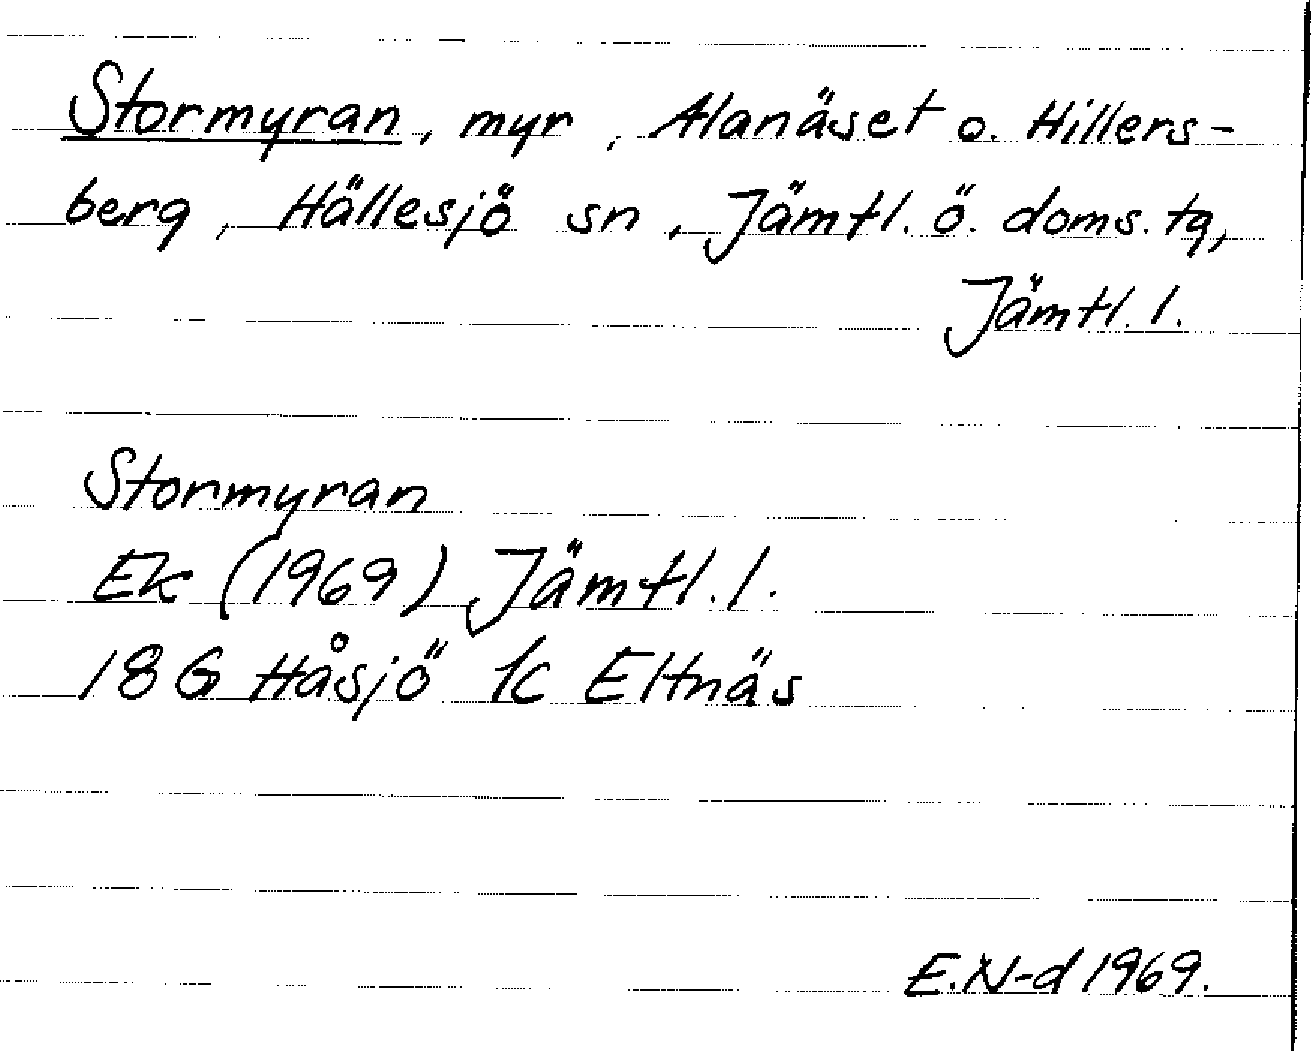 Stormyran, myr, Alanäset o. Hillers-
berg, Hällesjö sn, Jämtl. ö. doms. tg,
Jämtl. l.
Stormyran
Ek (1969) Jämtl. l.
18 G Håsjö 1c Eltnäs
E.N-d 1969.